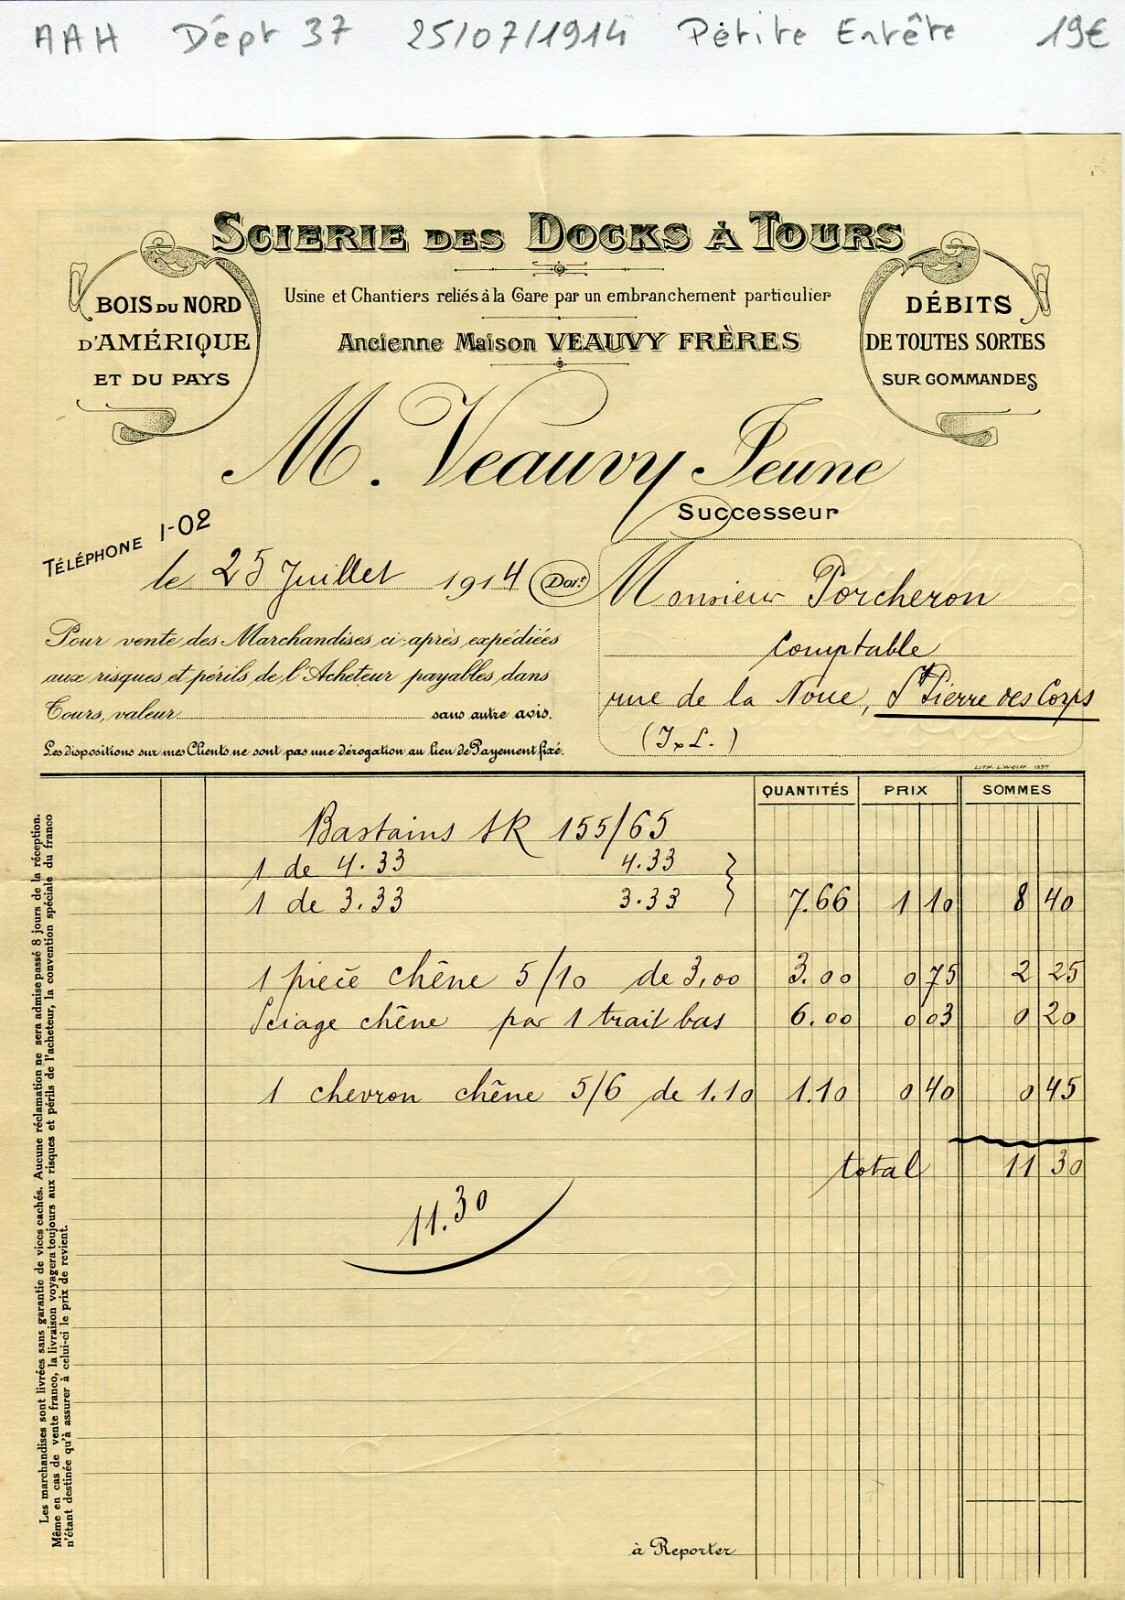 AAH Dépt 37 25/07/1914 Pétite Entête 19€
SCIERIE DES DOCKS À TOURS
BOIS DU NORD
D'AMÉRIQUE
ET DU PAYS
Usine et Chantiers reliés à la Gare par un embranchement particulier
Ancienne Maison VEAUVY FRÈRES
DÉBITS
DE TOUTES SORTES
SUR COMMANDES
M. Veauvy Jeune
Successeur
TÉLÉPHONE 1-02
le 25 Juillet 1914 Doit
Monsieur Porcheron
Comptable
rue de la Noue, St Pierre des Corps
(I&L.)
Pour vente des Marchandises ci-après expédiées
aux risques et périls de l'Acheteur payables dans
Tours, valeur sans autre avis.
Les dispositions sur mes Clients ne sont pas une dérogation au lieu de Payement fixé.
LITH. L. WOLFF
QUANTITÉS PRIX SOMMES
Bastains 155/65
1 de 4.33 4.33
1 de 3.33 3.33 7.66 1 10 8 40
1 pièce chêne 5/10 de 3,00 3.00 0 75 2 25
Sciage chêne par 1 trait bas 6.00 0 03 0 20
1 chevron chêne 5/6 de 1.10 1.10 0 40 0 45
total 11 30
11.30
à Reporter
Les marchandises sont livrées sans garantie de vices cachés. Aucune réclamation ne sera admise passé 8 jours de la réception.
Même en cas de vente franco, la livraison voyagera toujours aux risques et périls de l'acheteur, la convention spéciale du franco
n'étant destinée qu'à assurer à celui-ci le prix de revient.